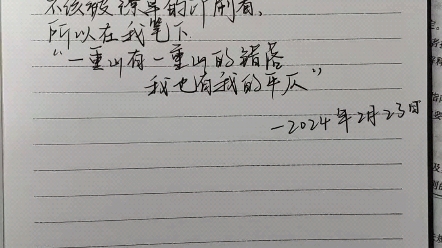 不该被潦草的印刷着,
所以在我笔下
“一重山有一重山的错落
我也有我的平仄”
—2024年2月23日